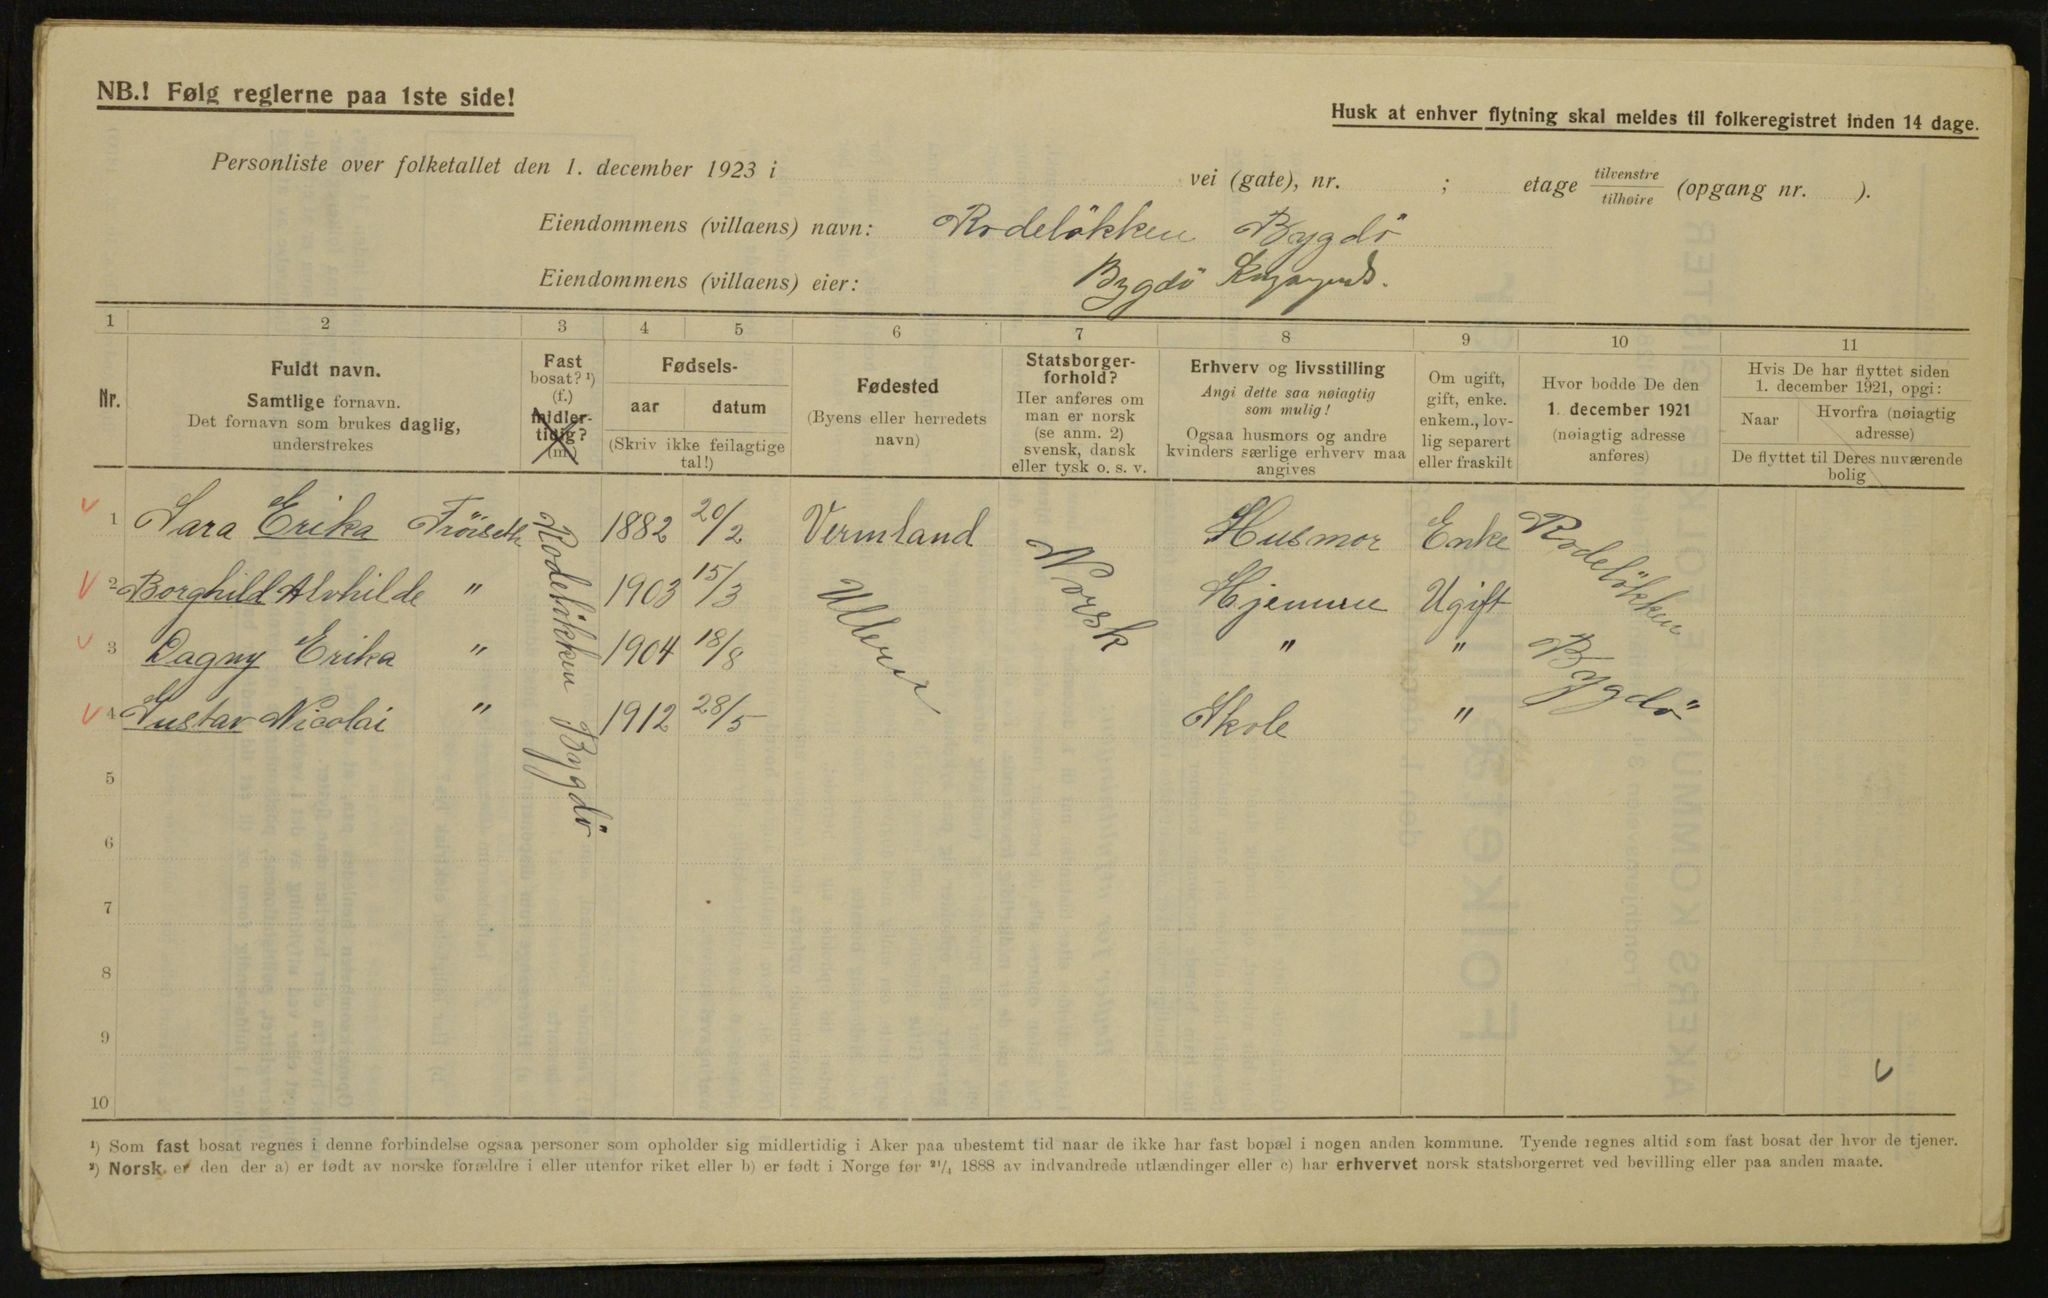 NB.! Følg reglerne paa 1ste side!
Husk at enhver flytning skal meldes til folkeregistret inden 14 dage.
Personliste over folketallet den 1. december 1923 i vei (gate), nr. ; etage tilvenstre/tilhøire (opgang nr. ).
Eiendommens (villaens) navn: Rodeløkken Bygdö
Eiendommens (villaens) eier: Bygdö
1 2 3 4 5 6 7 8 9 10 11
Nr.
Fuldt navn.
Samtlige fornavn.
Det fornavn som brukes daglig,
understrekes
Fast
bosat? ¹)
(f.)
midler-
tidig?
(m.)
Fødsels-
aar datum
(Skriv ikke feilagtige
tal!)
Fødested
(Byens eller herredets
navn)
Statsborger-
forhold?
Her anføres om
man er norsk
(se anm. 2)
svensk, dansk
eller tysk o. s. v.
Erhverv og livsstilling
Angi dette saa nøiagtig
som mulig!
Ogsaa husmors og andre
kvinders særlige erhverv maa
angives
Om ugift,
gift, enke.
enkem., lov-
lig separert
eller fraskilt
Hvor bodde De den
1. december 1921
(nøiagtig adresse
anføres)
Hvis De har flyttet siden
1. december 1921, opgi:
Naar
Hvorfra (nøiagtig
adresse)
De flyttet til Deres nuværende
bolig
1 Sara Erika Fröiseth 1882 20/2 Vermland Husmor Enke
2 Borghild Alvhilde " 1903 15/3 Hjemme Ugift
3 Dagny Erika " 1904 18/8 " "
4 Gustav Nicolai " 1912 28/5 Skole "
Rodelökken Bygdö
Ullern
Norsk
Rodelökken
Bygdö
5
6
7
8
9
10
¹) Som fast bosat regnes i denne forbindelse ogsaa personer som opholder sig midlertidig i Aker paa ubestemt tid naar de ikke har fast bopæl i nogen anden kommune. Tyende regnes altid som fast bosat der hvor de tjener.
²) Norsk er den der a) er født av norske forældre i eller utenfor riket eller b) er født i Norge før ²¹/₄ 1888 av indvandrede utlændinger eller c) har erhvervet norsk statsborgerret ved bevilling eller paa anden maate.